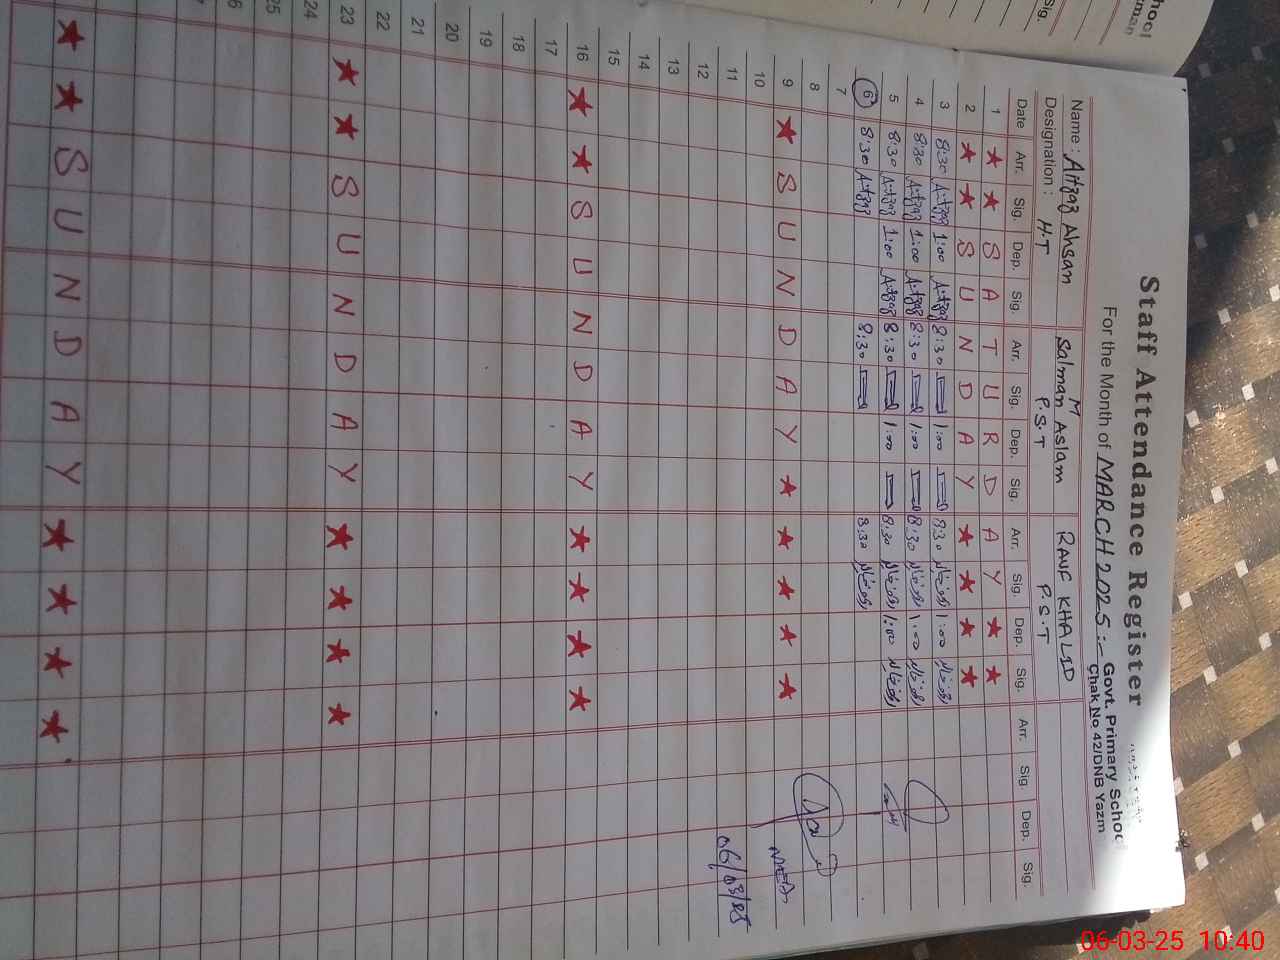 Staff Attendance Register
For the Month of MARCH 2025:- Govt. Primary School
Chak No. 42/DNB Yazm
Name : Aitzaz Ahsan M Salman Aslam RAUF KHALID
Designation : H.T P.S.T P.S.T
Date Arr. Sig. Dep. Sig. Arr. Sig. Dep. Sig. Arr. Sig. Dep. Sig. Arr. Sig. Dep. Sig.
1 ★ ★ S A T U R D A Y ★ ★
2 ★ ★ S U N D A Y ★ ★ ★ ★
3 8:30 Aitzaz 1:00 Aitzaz 8:30 1:00 8:30 1:00
4 8:30 Aitzaz 1:00 Aitzaz 8:30 1:00 8:30 1:00
5 8:30 Aitzaz 1:00 Aitzaz 8:30 1:00 8:30 1:00
6 8:30 Aitzaz 8:30 8:30
7
8
9 ★ S U N D A Y ★ ★ ★ ★ ★
10
11
12
06/03/25
13
14
15
16 ★ ★ S U N D A Y ★ ★ ★ ★
17
18
19
20
21
22
23 ★ ★ S U N D A Y ★ ★ ★ ★
24
25
★ ★ S U N D A Y ★ ★ ★ ★
hool
Sig.
06-03-25 10:40